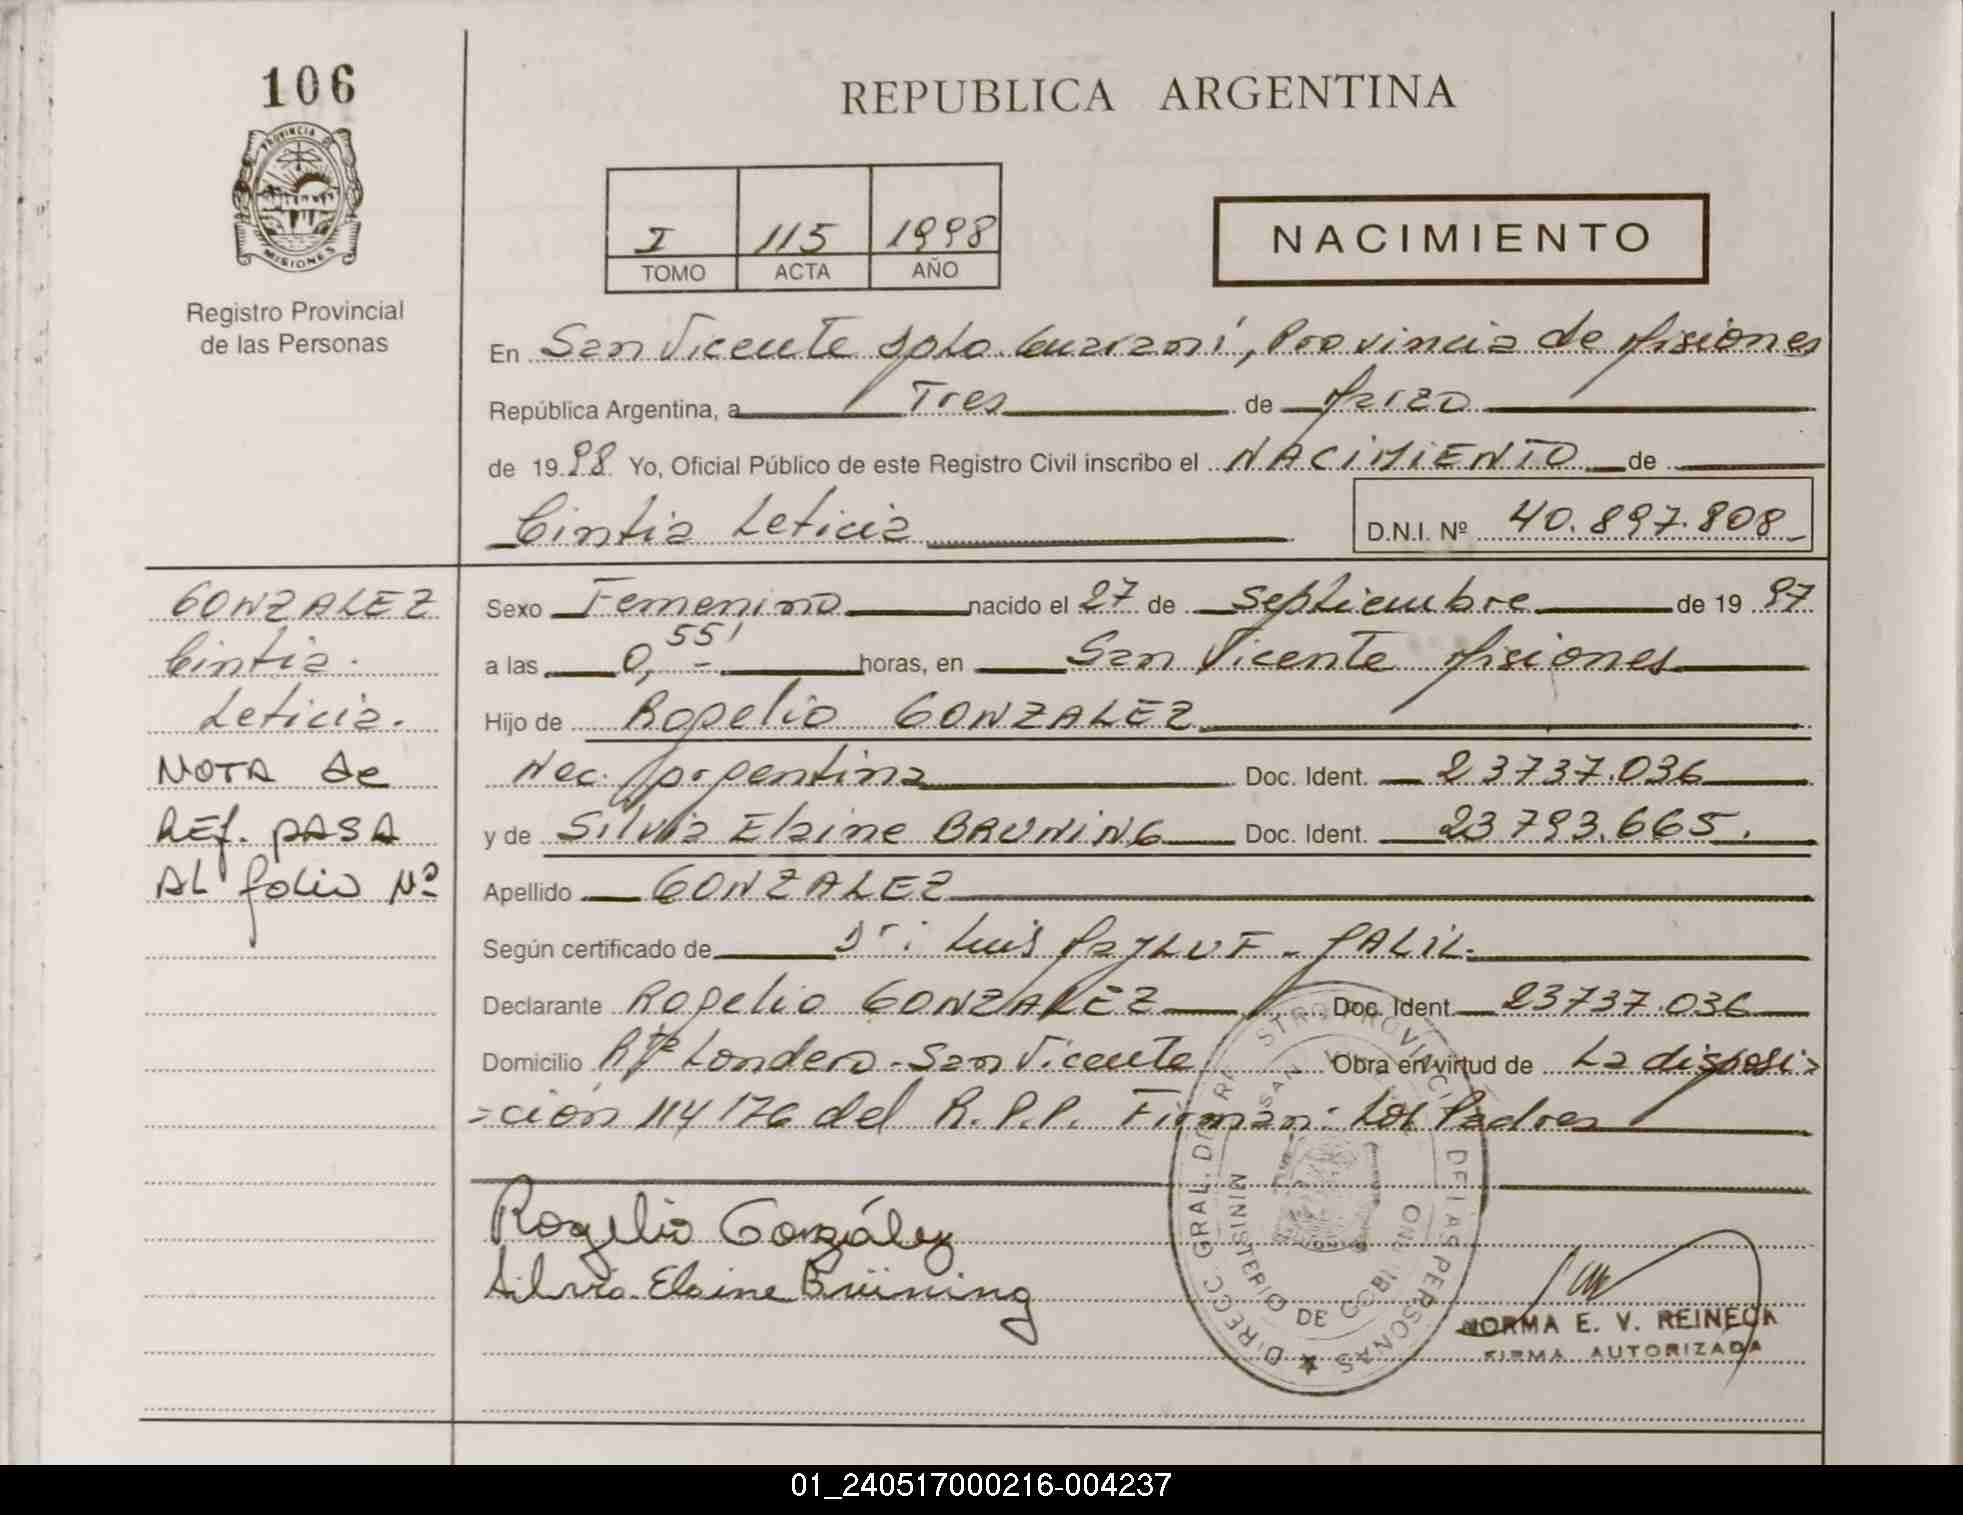 106
PROVINCIA DE
MISIONES
Registro Provincial
de las Personas
REPUBLICA ARGENTINA
I 115 1998
TOMO ACTA AÑO
NACIMIENTO
En San Vicente Dpto. Guaraní, Provincia de Misiones
República Argentina, a Tres de Marzo
de 19 98 Yo, Oficial Público de este Registro Civil inscribo el NACIMIENTO de
Cintia Leticia D.N.I. Nº 40.897.808
GONZALEZ
Cintia.
Leticia.
NOTA de
REf. PASA
AL folio Nº
Sexo Femenino nacido el 27 de Septiembre de 19 97
a las 0,55' horas, en San Vicente Misiones
Hijo de Rogelio GONZALEZ
Nac. Argentina Doc. Ident. 23737.036
y de Silvia Elaine BRUNING Doc. Ident. 23793.665.
Apellido GONZALEZ
Según certificado de Dr: Luis
Declarante Rogelio GONZALEZ Doc. Ident. 23737.036
Domicilio Rte Londero - San Vicente Obra en virtud de La disposi=
=ción 114/76 del R.P.P. Firman: Los Padres
Rogelio González
Silvia Elaine Brüning
DIRECC. GRAL. DE REGISTRO PROVINCIAL DE LAS PERSONAS
MINISTERIO DE GOBIERNO
SAN
NORMA E. V. REINECK
FIRMA AUTORIZADA
01_240517000216-004237